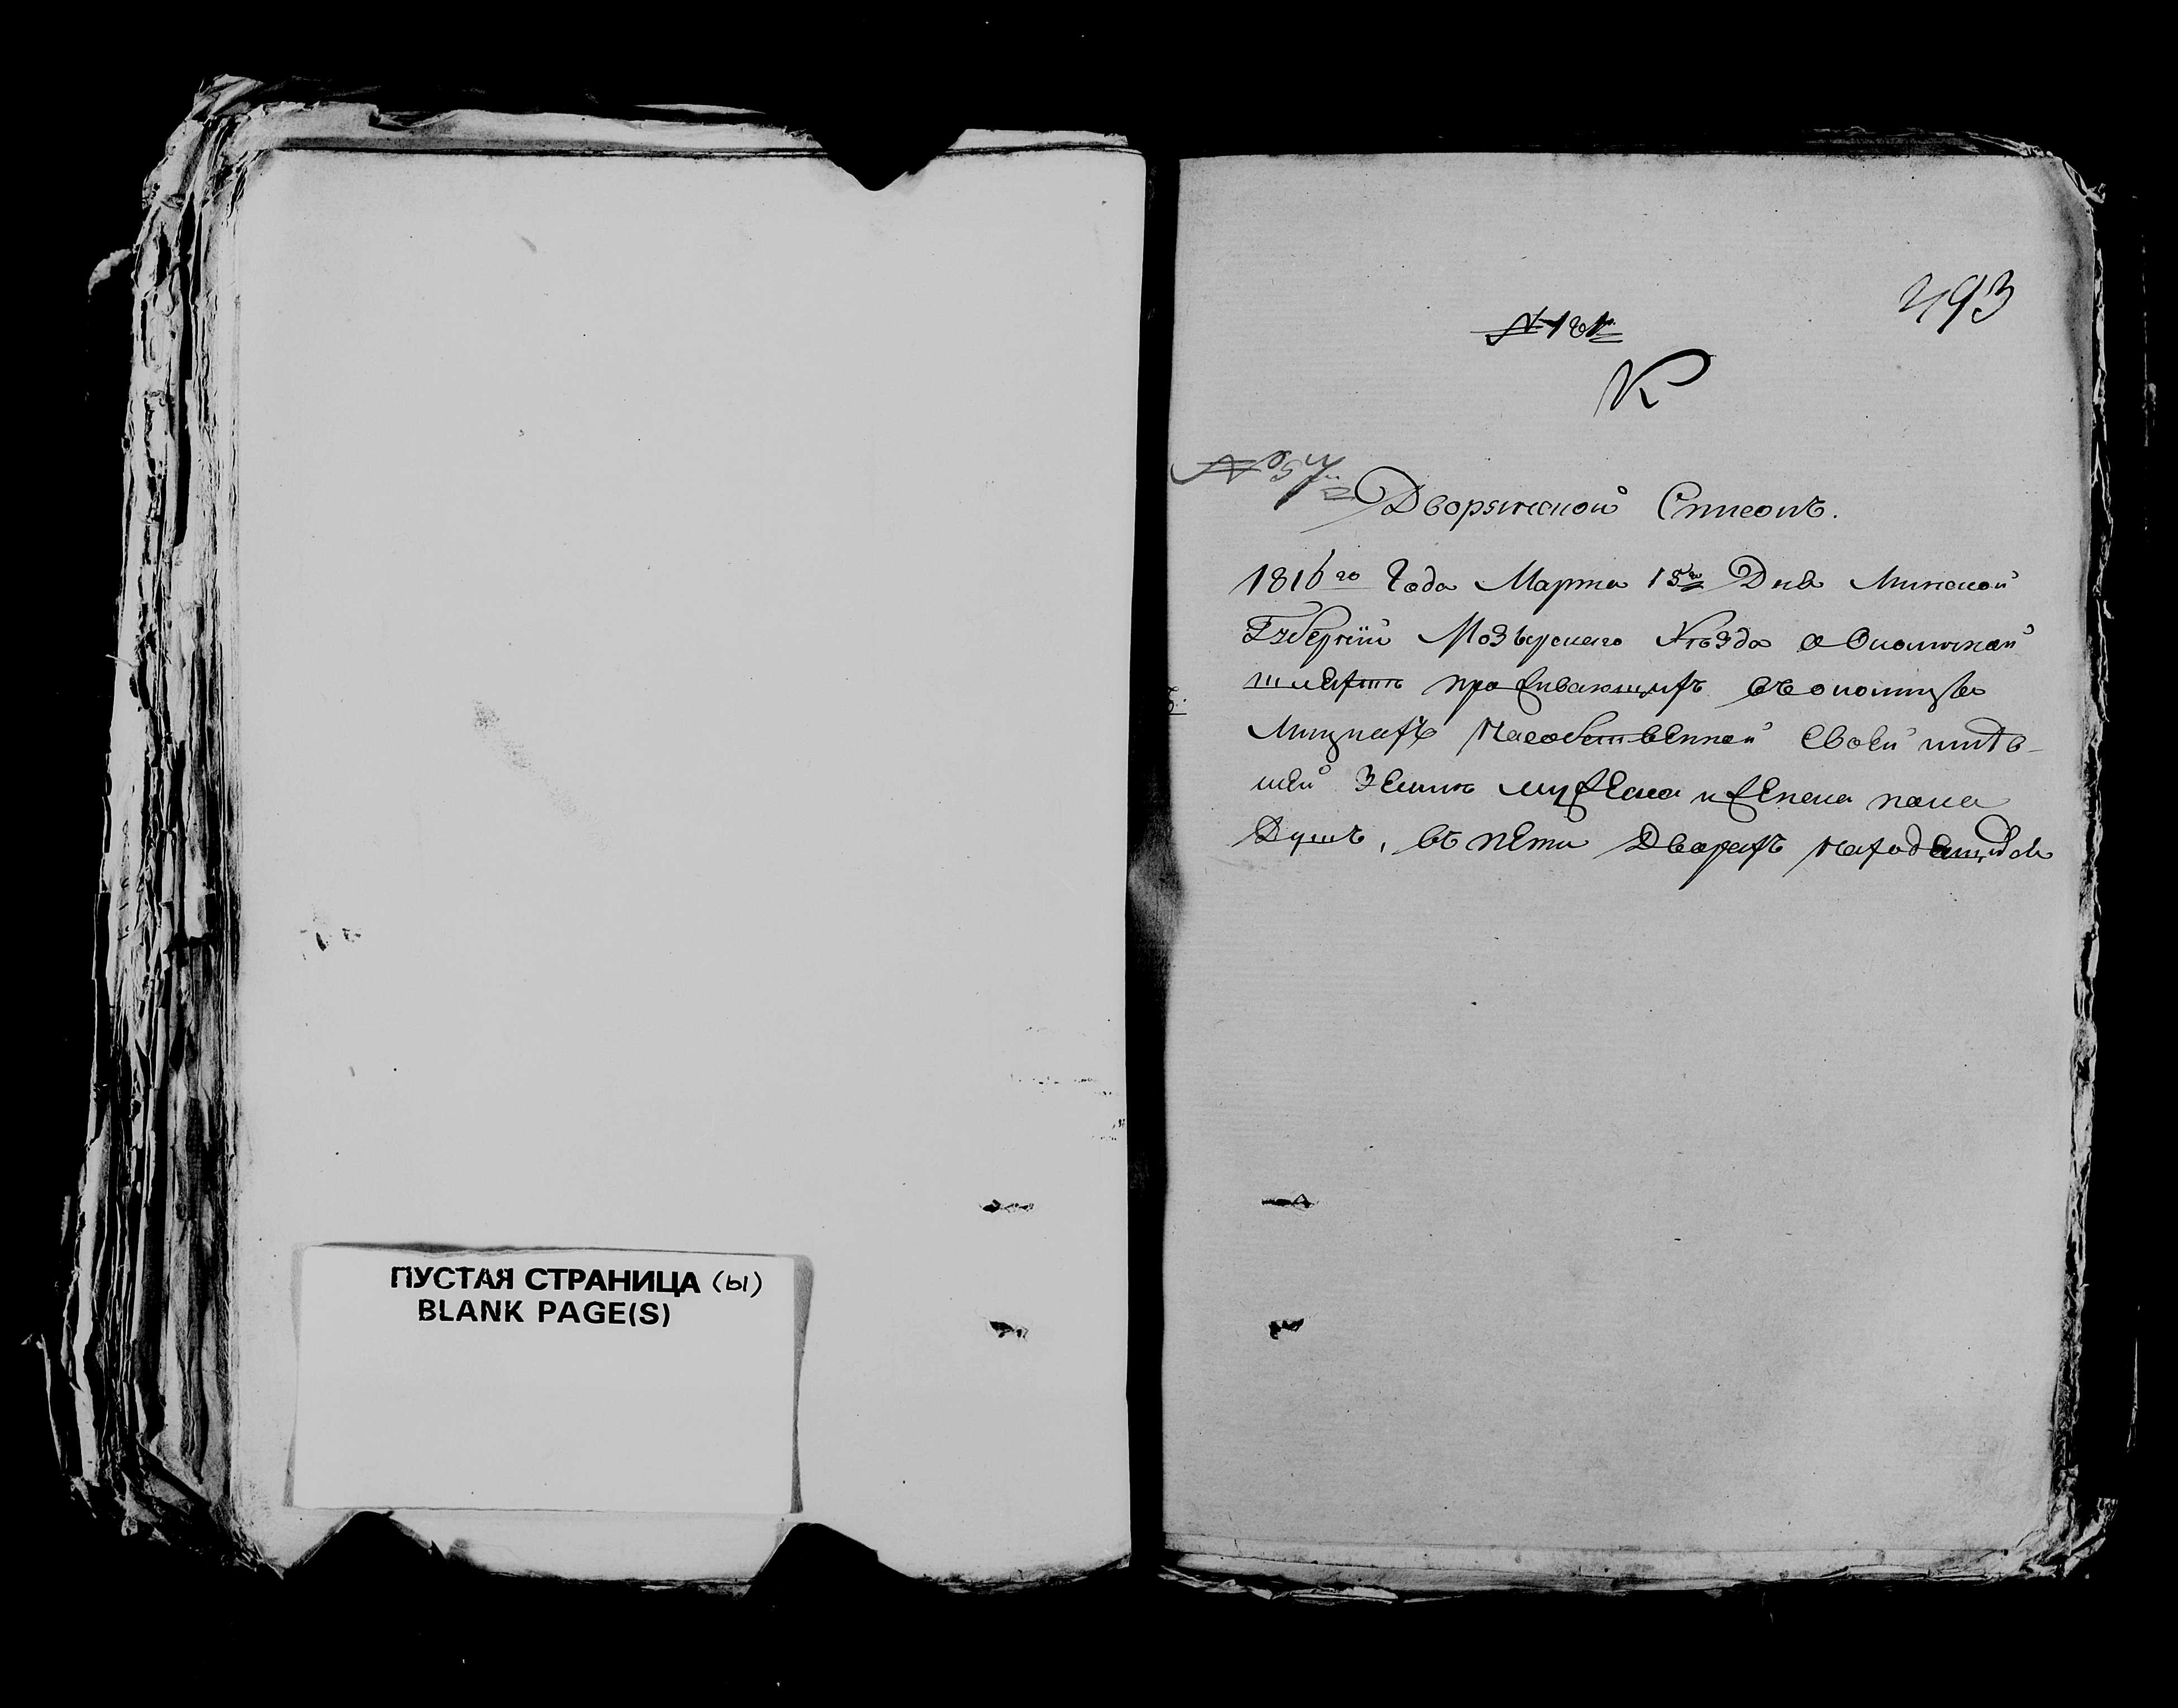 ПУСТАЯ СТРАНИЦА (ы)
BLANK PAGE(S)
493
№ 181
К
№ 57
Дворянской Списокъ.
1816го Года Марта 15го Дня Минской
Губернiи Мозырскаго Уѣзда о Околичной
шляхты проживающихъ въ околицѣ
Мицкахъ На собственной Своей жидъ-
шей Земли мужеска и женска пола
Душъ, въ пети Дворахъ находящихся